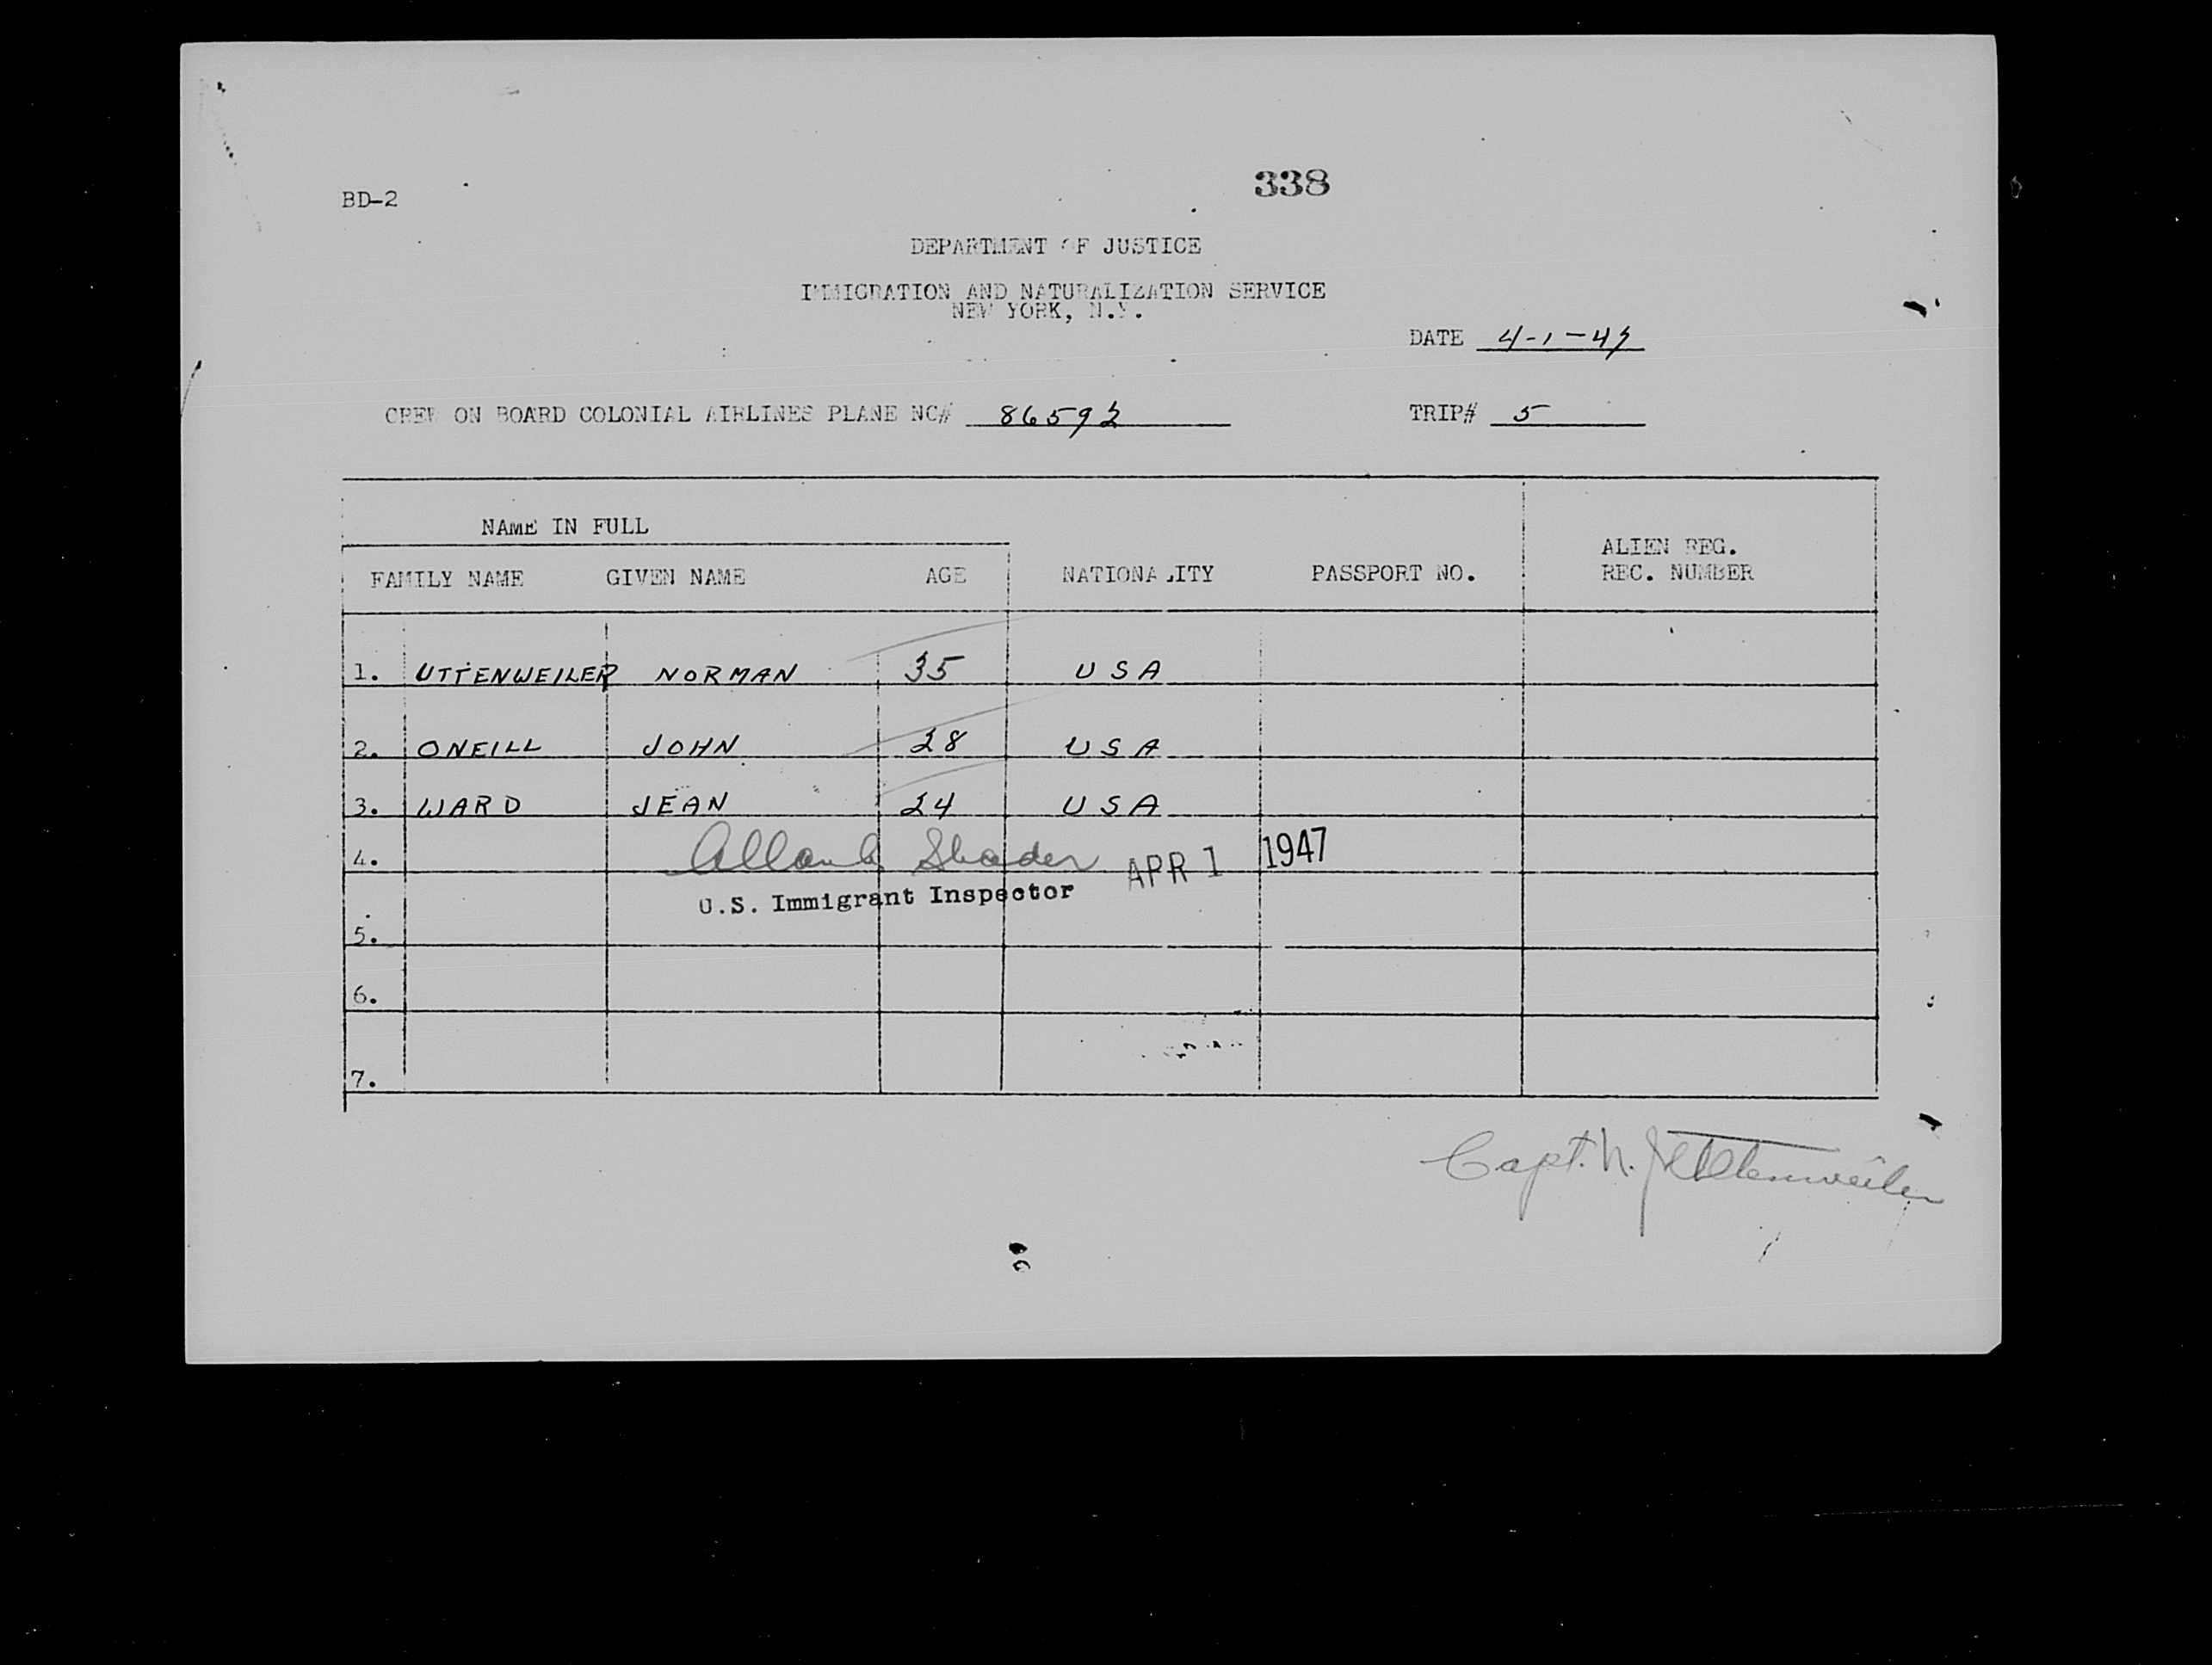 338
BD-2
DEPARTMENT OF JUSTICE
IMMIGRATION AND NATURALIZATION SERVICE
NEW YORK, N.Y.
DATE 4-1-47
CREW ON BOARD COLONIAL AIRLINES PLANE NC# 86592 TRIP# 5
NAME IN FULL
ALIEN REG.
FAMILY NAME GIVEN NAME AGE NATIONALITY PASSPORT NO. REC. NUMBER
1. UTTENWEILER NORMAN 35 USA
2. ONEILL JOHN 28 USA
3. WARD JEAN 24 USA
4. Shader APR 1 1947
U.S. Immigrant Inspector
5.
6.
7.
Capt. N. Uttenweiler